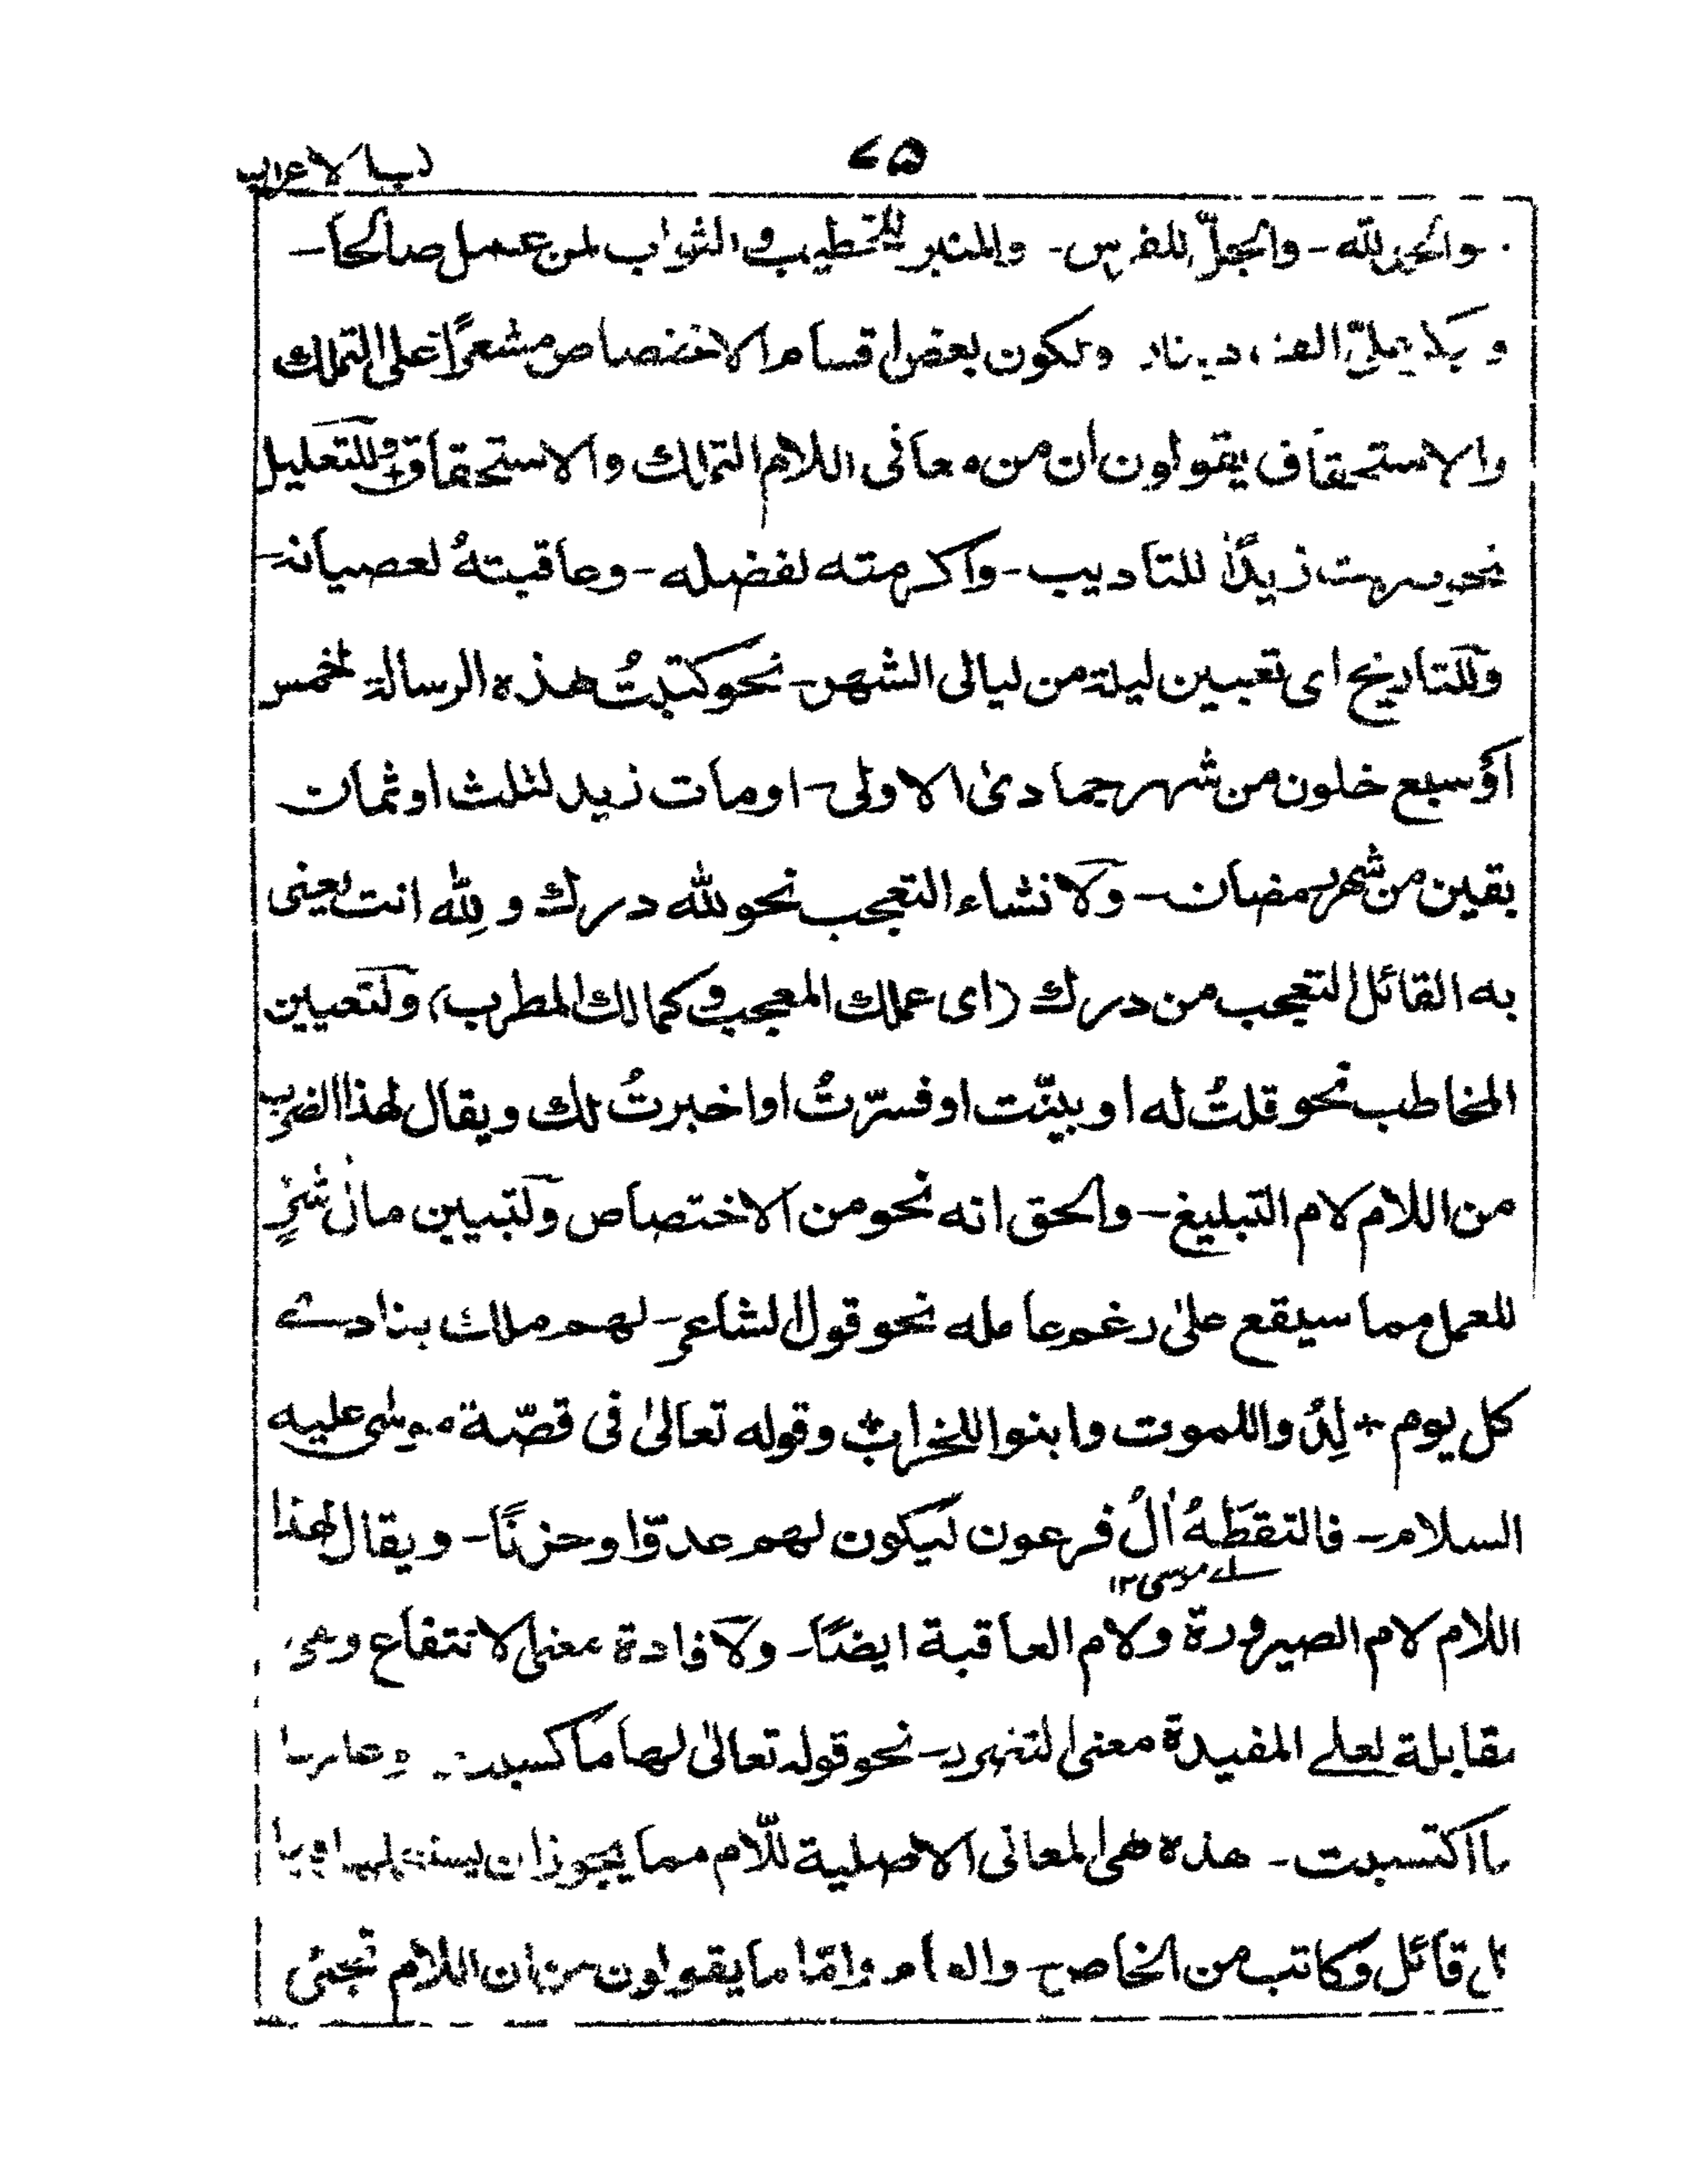 ۷۵
والحمد لله - والجلّ للفرس - والمنبر للخطيب والثواب لمن عمل صالحًا -
دينار وتكون بعض اقسام الاختصاص مشعرًا على التملك
والاستحقاق يقولون ان من معانى اللام التملك والاستحقاق وللتعليل
نحو ضربت زيدًا للتاديب - واكرمته لفضله - وعاقبتهُ لعصيانه -
وللتاريخ اى تعيين ليلة من ليالى الشهر - نحو كتبتُ هذه الرسالة لخمس
اؤ سبع خلون من شهر جمادى الاولى - او مات زيد لثلث او ثمان
بقين من شهر رمضان - ولانشاء التعجب نحو لله درك و لِلّه انت يعنى
به القائل التعجب من درك (اى عملك المعجب وكمالك المطرب) ولتعيين
المخاطب نحو قلتُ له او بينّت او فسّرتُ او اخبرتُ لك ويقال لهذا الضرب
من اللام لام التبليغ - والحق انه نحو من الاختصاص ولتبيين مال شئٍ
للعمل مما سيقع على رغم عامله نحو قول الشاعر - لهم ملاك ينادے
كل يوم * لِدُوا للموت وابنوا للخراب وقوله تعالىٰ فى قصّة موسى عليه
السلام - فالتقطَهُ اٰلُ فرعون ليكون لهم عدوّا وحزنًا - ويقال لهذا
سلے موسى ۱۲
اللام لام الصيرورة ولام العاقبة ايضًا - ولافادة معنى الانتفاع وهى
مقابلة لعلے المفيدة معنى التضرر - نحو قوله تعالىٰ لها ما كسبت - وعليها
ما اكتسبت - هذه هى المعانى الاصلية للّام مما يجوز ان
كل قائل وكاتب من الخاص والعام وامّا ما يقولون من ان اللام تجئى